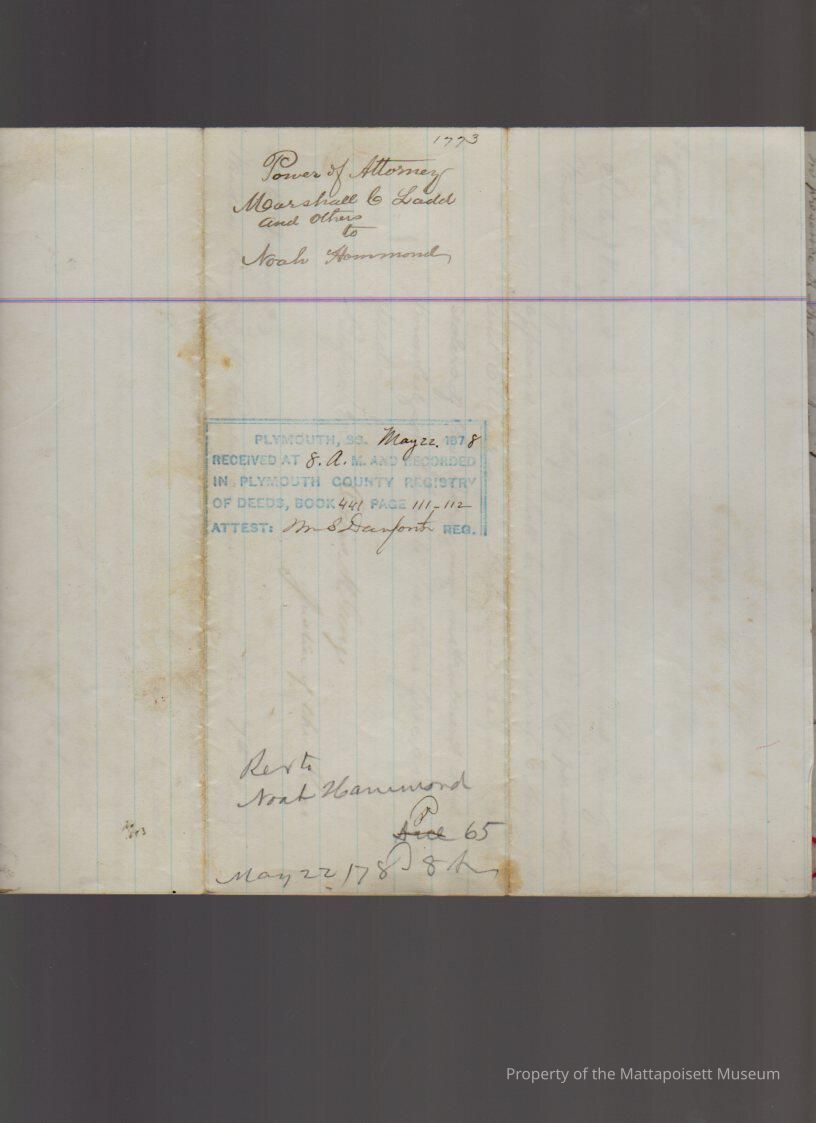 1773
Power of Attorney
Marshall C Ladd
and others
to
Noah Hammond
PLYMOUTH, SS. May 22, 1878
RECEIVED AT 8. A. M. AND RECORDED
IN PLYMOUTH COUNTY REGISTRY
OF DEEDS, BOOK 441 PAGE 111-112
ATTEST: Wm S Danforth REG.
Noah Hammond
65
May 22
Property of the Mattapoisett Museum